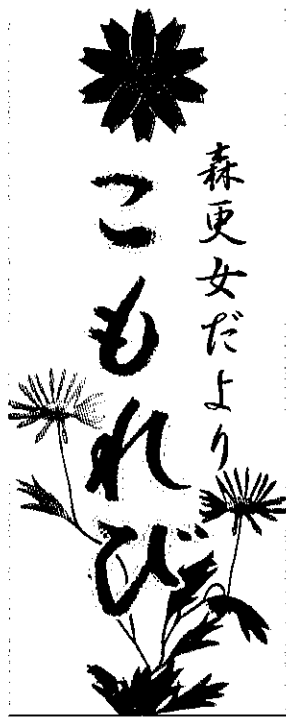 森更女だより
こもれび